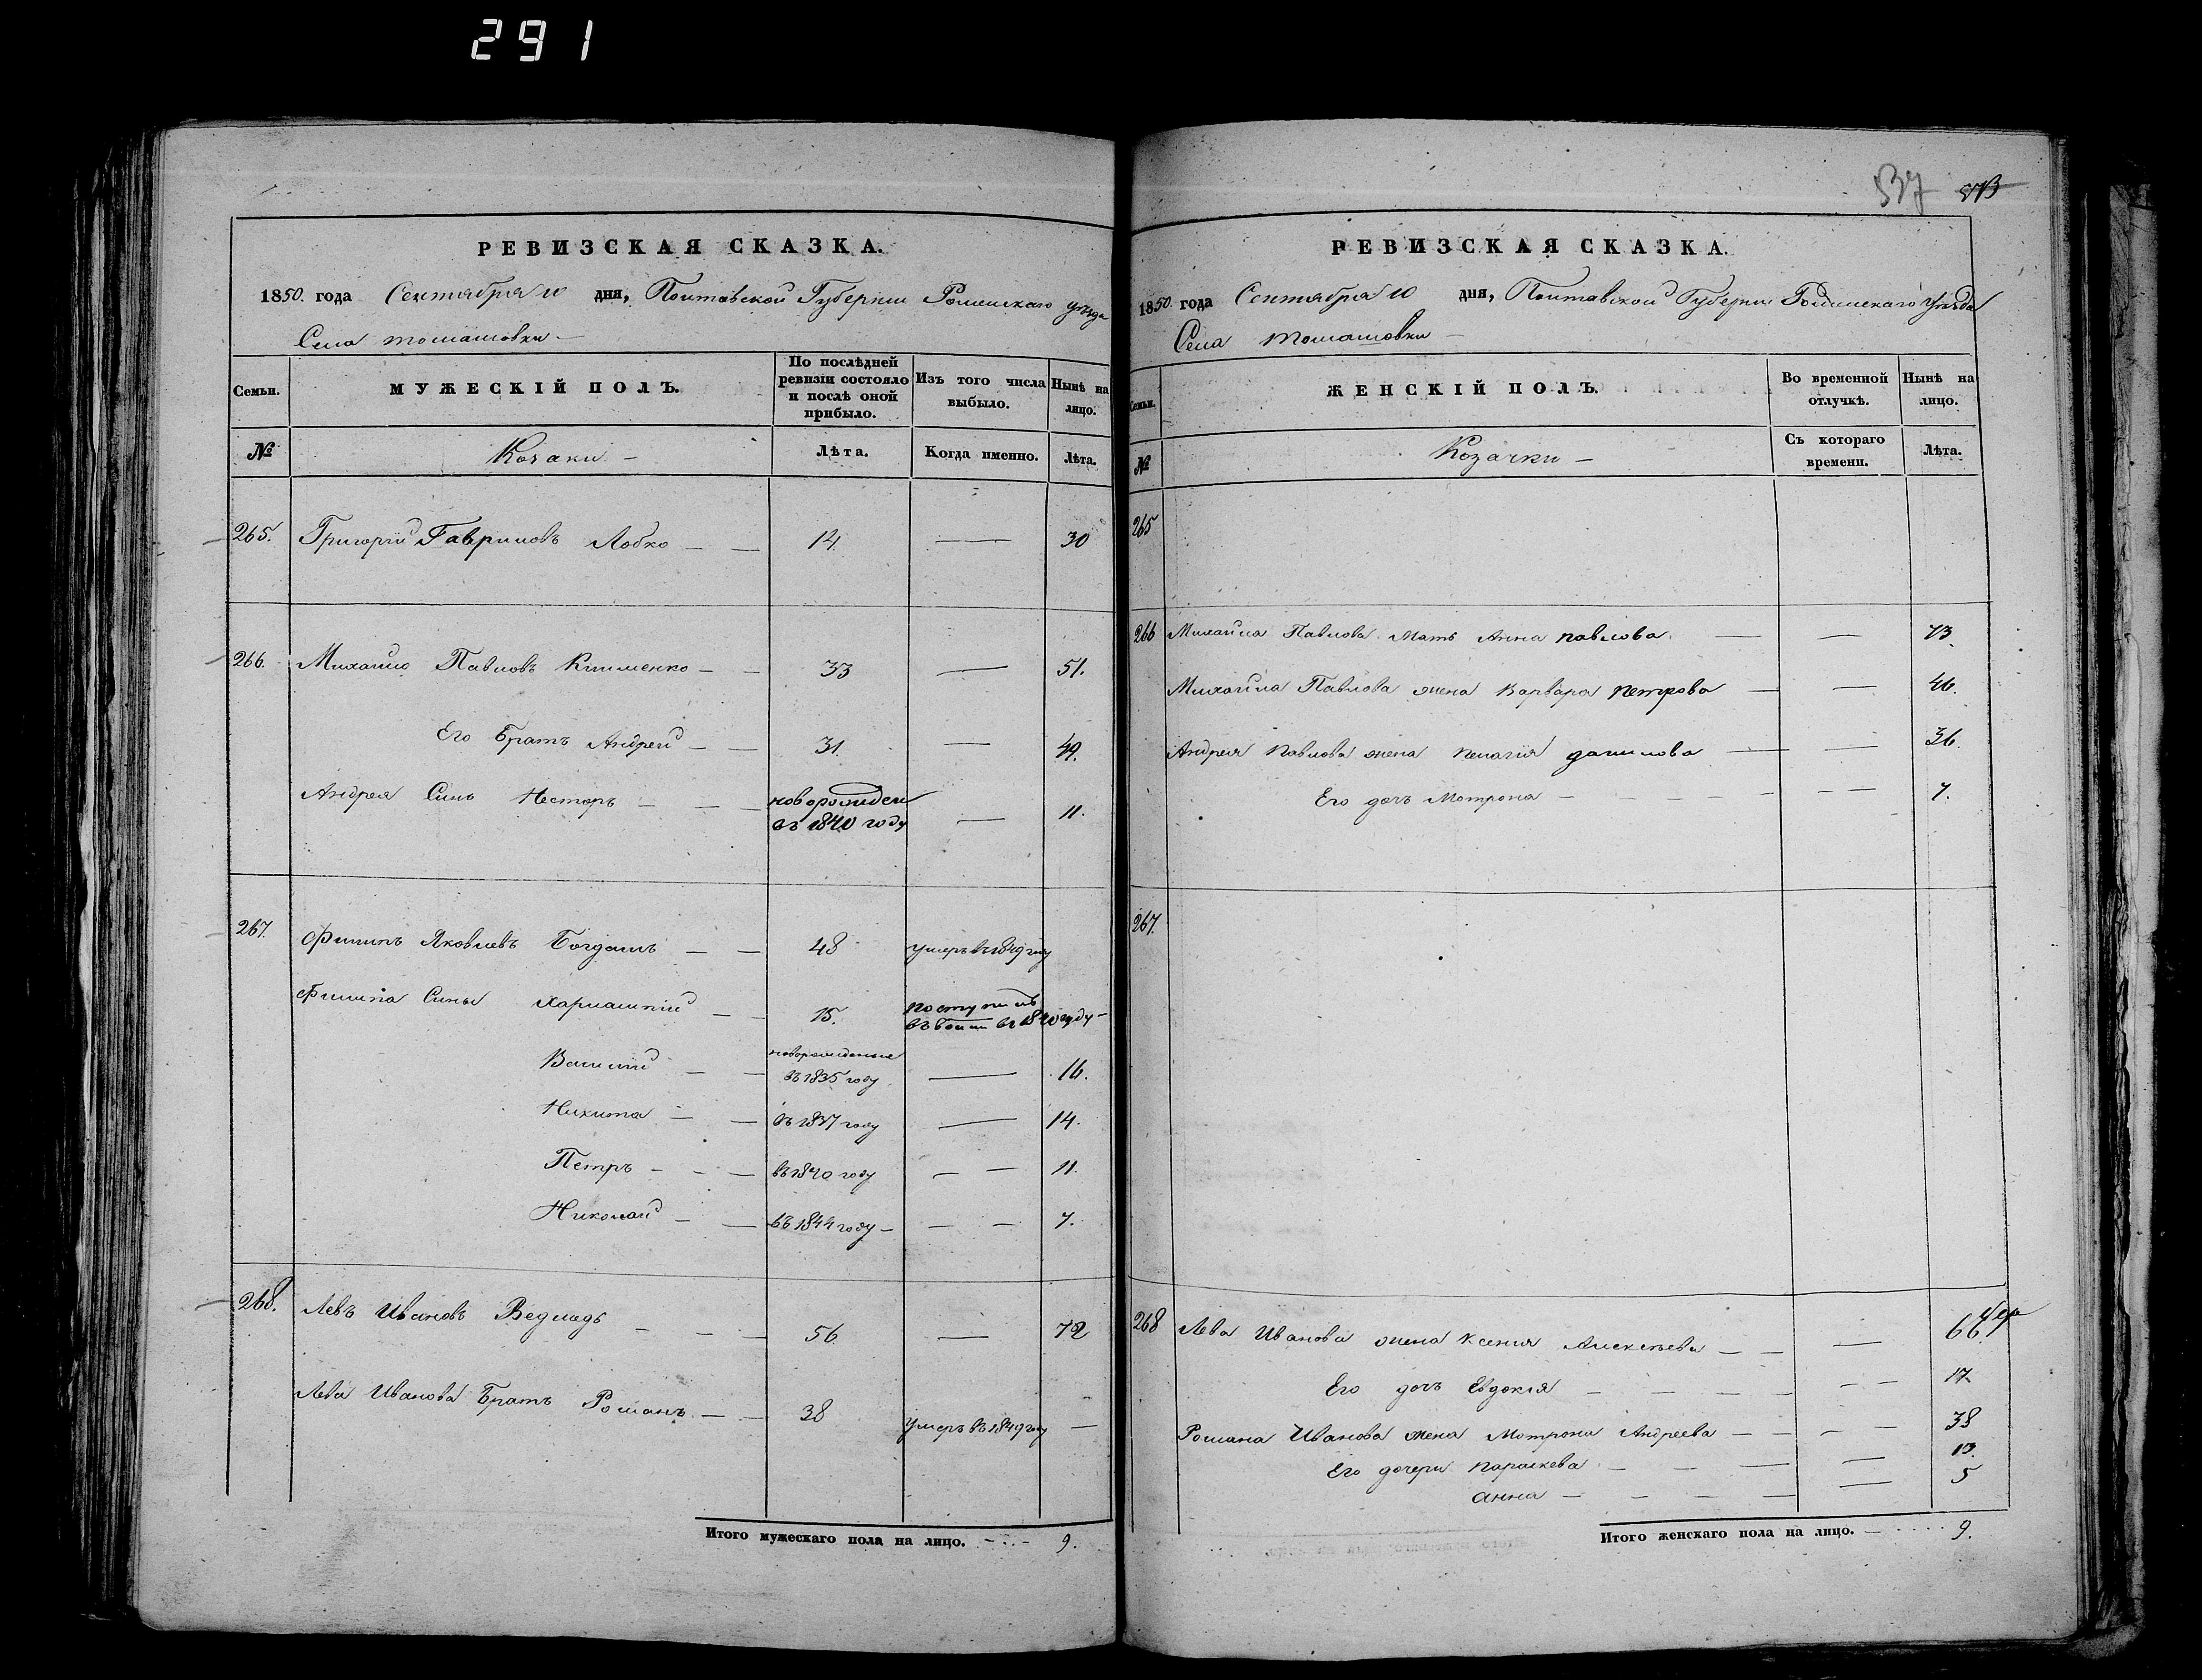 291
537 573
РЕВИЗСКАЯ СКАЗКА.
1850. года Сентября 10 дня, Полтавской Губернии Роменскаго уезда
Села томашовки —
Семьи. МУЖЕСКІЙ ПОЛЪ. По послѣдней ревизіи состояло и послѣ оной прибыло. Изъ того числа выбыло. Нынѣ на лицо.
№ Козаки — Лѣта. Когда именно. Лѣта.
265. Григорій Гавриловъ Лобко — — 14. — 30
266. Михайло Павловъ Клименко — — 33 — 51.
Его Братъ Андрей — — 31. — 49.
Андрея Синъ Несторъ — — — новорожден
въ 1840 году — 11.
267. Филипъ Яковлевъ Богдашъ — — 48 умеръ въ 1849 году
Филипа Сины Харлампій — — 15. поступилъ
въ 1840 году —
Василій — — новорожденные
въ 1835 году — 16.
Никита — — въ 1837 году — 14.
Петръ — — — въ 1840 году — — 11.
Николай — — въ 1844 году — — — 7.
268. Левъ Ивановъ Ведмадь — — — 56. — 72
Лева Иванова Братъ Романъ — — 38 умеръ въ 1849 году —
Итого мужескаго пола на лицо. — 9.
РЕВИЗСКАЯ СКАЗКА.
1850. года Сентября 10 дня, Полтавской Губерніи Роменскаго Уезда
Села томашовки —
Семьи. ЖЕНСКІЙ ПОЛЪ. Во временной отлучкѣ. Нынѣ на лицо.
№ Козачки — Съ котораго времени. Лѣта.
265
266 Михайла Павлова Мать Анна павлова — — 73.
Михайла Павлова жена Варвара петрова — — 46.
Андрея Павлова жена Пелагія данилова — — 36.
Его дочь Мотрона — — — — — — — 7.
267.
268 Лева Иванова жена Ксенія Алексѣева — — — 66.
Его дочь Евдокія — — — — — — 17.
Романа Иванова жена Мотрона Андреева — — — — 38
Его дочери параскева — — — — 13.
анна — — — — — 5
Итого женскаго пола на лицо. — 9.